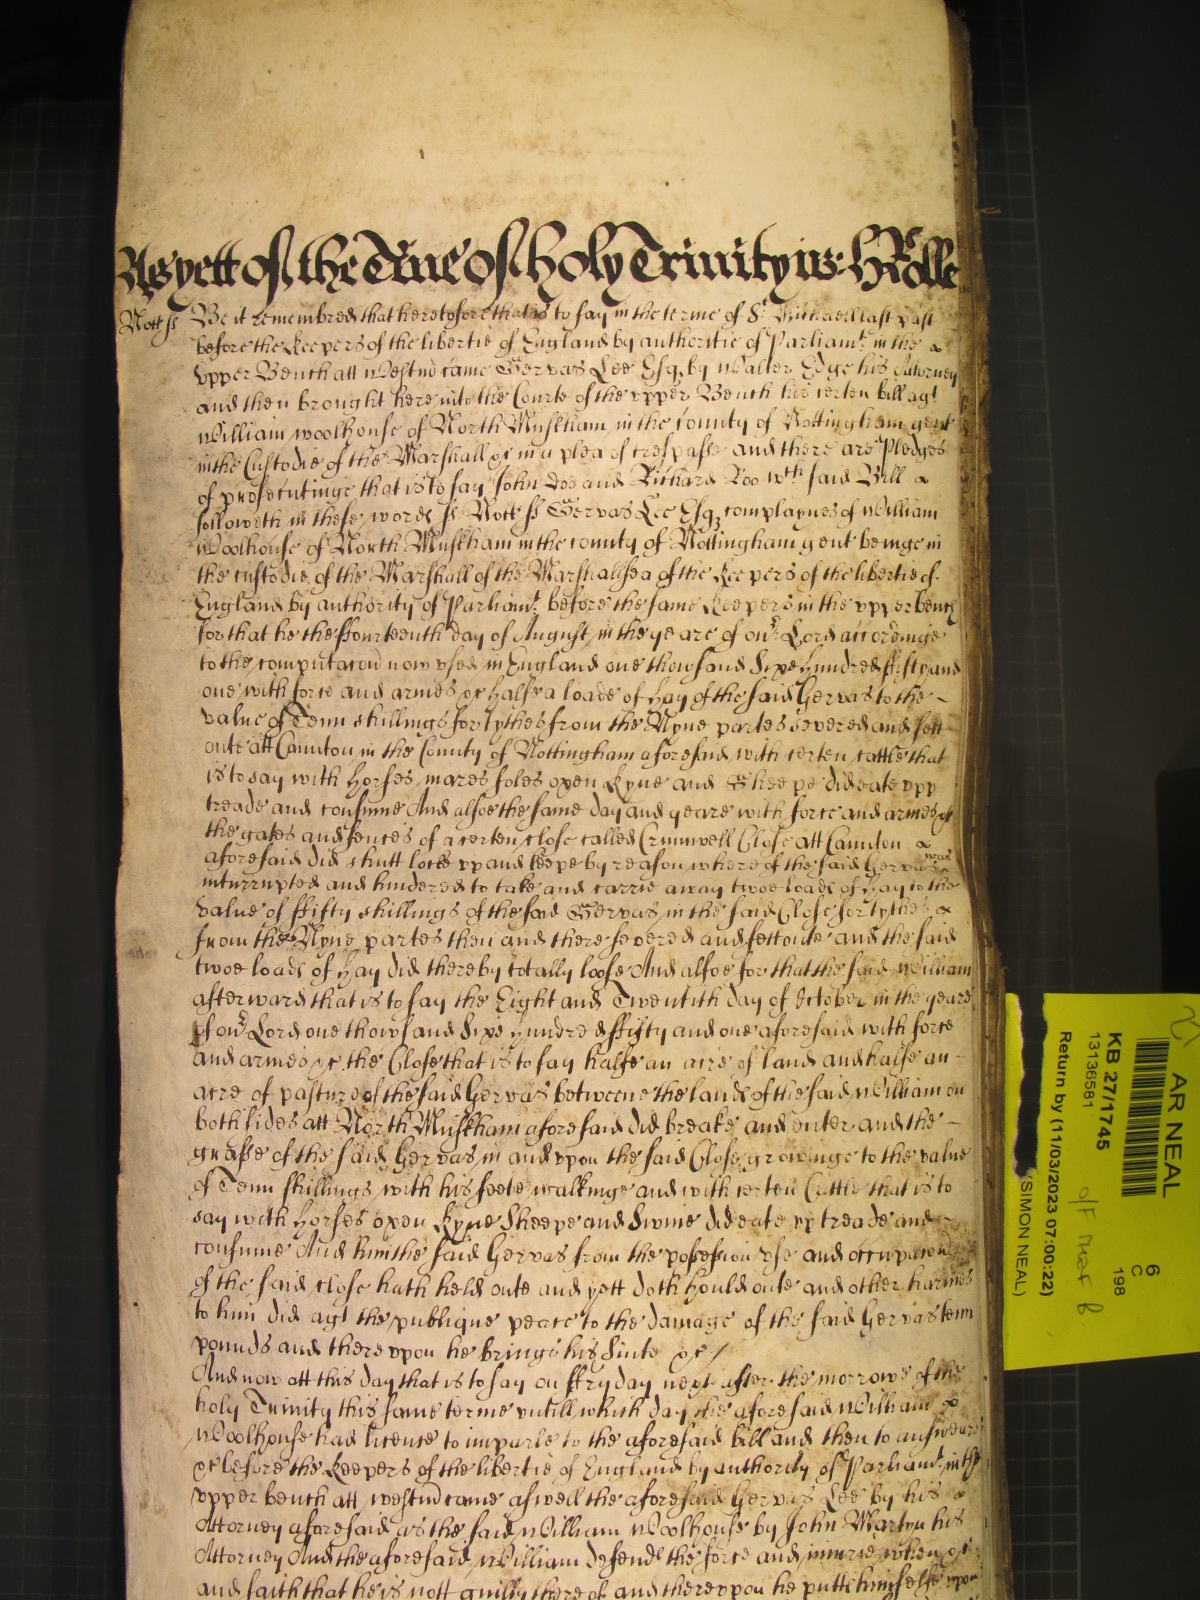 As yett of the Tme of holy Trinity
Nott ss Be it remembred that heretofore that is to say in the terme of St Michaell last past
before the Keepers of the libertie of England by authoritie of Parliamt in the
vpper Bench att Westmr came Gervas Lee Esqr by Walter Edge his Attorney
and then brought here into the Courte of the vpper Bench his certen bill agt
William Woolhouse of North Muskham in the County of Nottingham gent
in the Custodie of the Marshall &c in a plea of trespasse and there are Pledges
of prosecutinge that is to say John Doo and Richard Roo wch said Bill
followeth in these words ss Nott ss Gervas Lee Esqr complaynes of William
Woolhouse of North Muskham in the county of Nottingham gent beinge in
the custodie of the Marshall of the Marshallsea of the Keepers of the libertie of
England by authority of Parliamt before the same Keepers in the vpper bench
for that he the ffourteenth day of August in the yeare of our Lord accordinge
to the computacon now vsed in England one thowsand Sixe hundred ffifty and
one with force and armes &c halfe a loade of hay of the said Gervas to the
value of Tenn shillings for tythes from the Nyne partes severed and sett
oute att Caunton in the County of Nottingham aforesaid with certen cattle that
is to say with horses mares foles oxen Kyne and Sheepe did eate vpp
treade and consume And alsoe the same day and yeare with force and armes &c
the gates and fences of a certen close called Crumwell Close att Caunton
aforesaid did shutt lock vp and keepe by reason whereof the said Gervas was
interrupted and hindered to take and carrie away twoe loads of hay to the
value of ffifty shillings of the said Gervas in the said Close for tythes
from the Nyne partes then and there severed and sett oute and the said
twoe loads of hay did thereby totally loose And alsoe for that the said William
afterward that is to say the Eight and Twentith day of October in the yeare
of our Lord one thowsand Sixe hundred ffifty and one aforesaid with force
and armes &c the Close that is to say halfe an acre of land and halfe an
acre of pasture of the said Gervas betweene the lands of the said William on
both sides att North Muskham aforesaid did breake and enter and the
grasse of the said Gervas in and vpon the said Close growinge to the value
of Tenn shillings with his feete walkinge and with certen Cattle that is to
say with horses oxen Kyne Sheepe and Swine did eate vp treade and
consume And him the said Gervas from the possession vse and occupacon
of the said close hath held oute and yett doth hould oute and other harmes
to him did agt the publique peace to the damage of the said Gervas tenn
pounds and therevpon he brings his Suite &c /
And now att this day that is to say on ffryday next after the morrowe of the
holy Trinity this same terme vntill which day the aforesaid William
Woolhouse had licence to imparle to the aforesaid bill and then to answeare
&c before the Keepers of the libertie of England by authority of Parliamt in the
vpper bench att Westmr came aswell the aforesaid Gervas Lee by his
Attorney aforesaid as the said William Woolhouse by John Martyn his
Attorney And the aforesaid William defends the force and iniurie when &c
and saith that he is nott guilty thereof and therevpon he putts himselfe vpon
AR NEAL
KB 27/1745
13136581
Return by (11/03/2023 07:00:22)
(SIMON NEAL)
6
C
198